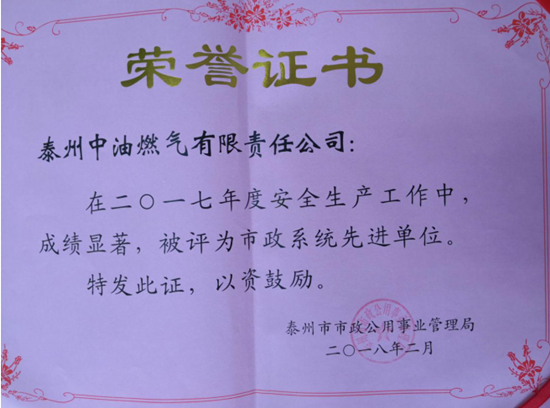 荣誉证书
泰州中油燃气有限责任公司：
在二〇一七年度安全生产工作中，
成绩显著，被评为市政系统先进单位。
特发此证，以资鼓励。
泰州市市政公用事业管理局
二〇一八年二月